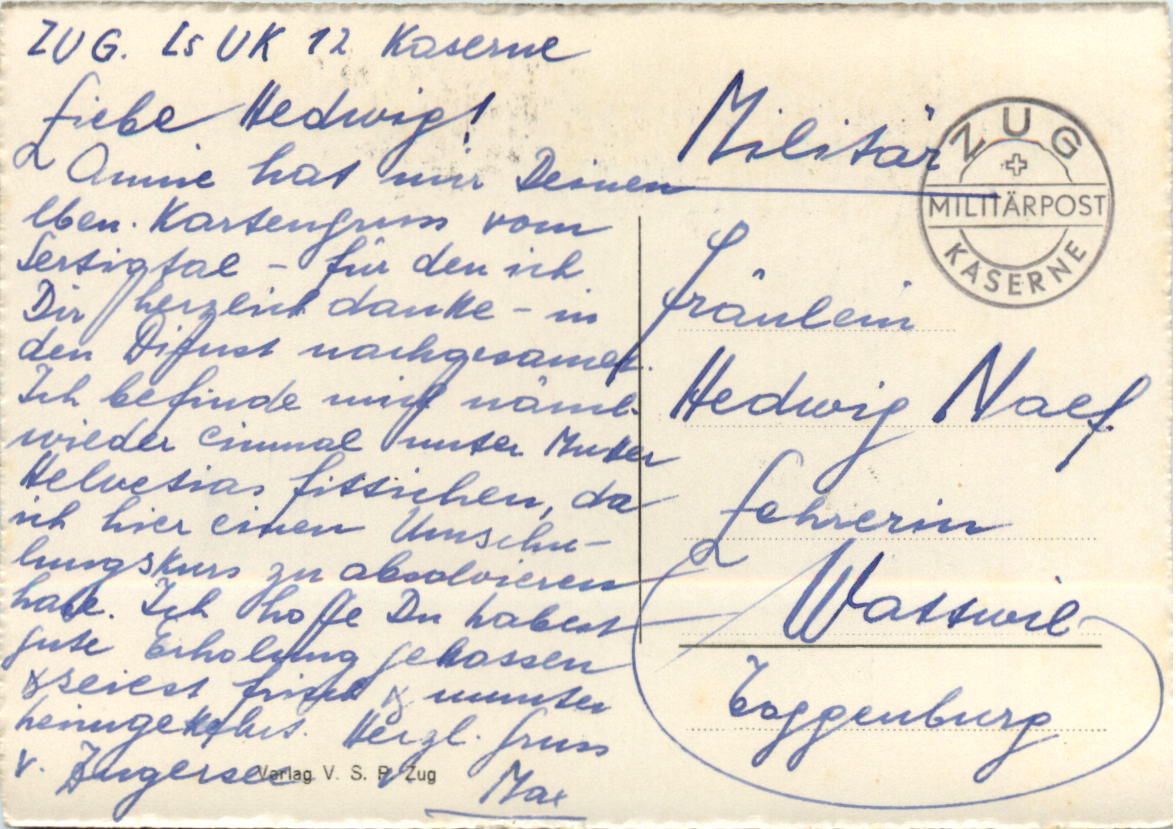 ZUG. Ls UK 12 Kaserne
Liebe Hedwig!
Annie hat mir Deinen
lben. Kartengruss vom
Sertigtal – für den ich
Dir herzlich danke – in
den Dienst nachgesandt.
Ich befinde mich näml.
wieder einmal unter Mutter
Helvetias Fittichen, da
ich hier einen Umschu-
lungskurs zu absolvieren
habe. Ich hoffe Du habest
gute Erholung genossen
& seiest frisch & munter
heimgekehrt. Herzl. Gruss
v. Zugersee
Max
Verlag V. S. P. Zug
Militär
ZUG
MILITÄRPOST
KASERNE
Fräulein
Hedwig Naef
Lehrerin
Wattwil
Toggenburg